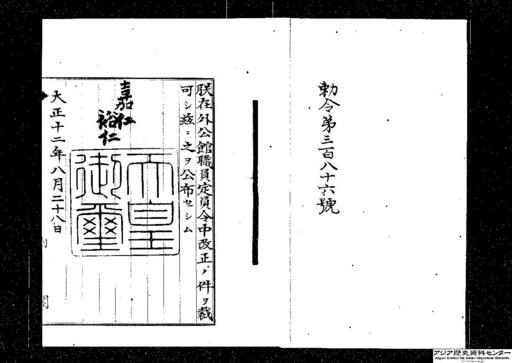 勅令第三百八十六號
朕在外公館職員定員令中改正ノ件ヲ裁
可シ茲ニ之ヲ公布セシム
嘉仁
裕仁
天皇
御璽
大正十二年八月二十八日
アジア歴史資料センター
Japan Center for Asian Historical Records